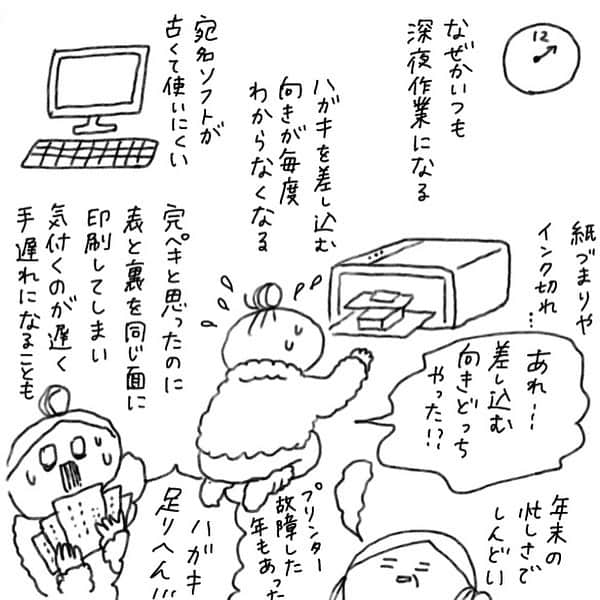 12
なぜかいつも
深夜作業になる
ハガキを差し込む
向きが毎度
わからなくなる
宛名ソフトが
古くて使いにくい
紙づまりや
インク切れ…
あれ…
差し込む
向きどっち
やった!?
完ペキと思ったのに
表と裏を同じ面に
印刷してしまい
気付くのが遅く
手遅れになることも
ハガキ
足りへん!!
プリンター
故障した
年もあった
年末の
忙しさで
しんどい